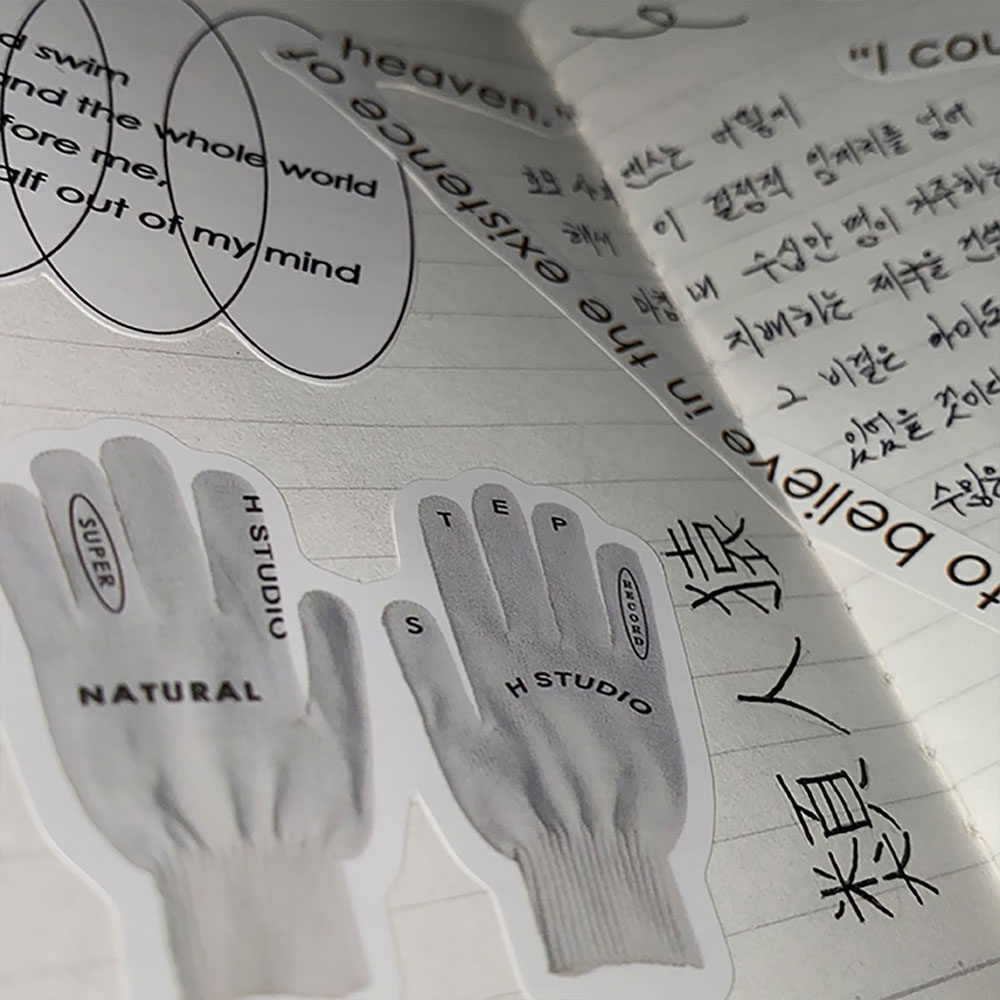 d swim
and the whole world
fore me,
alf out of my mind
heaven."
to believe in the existence of
"I cou
호모
엔스는 어떻게
해서
이 결정적 임계치를 넘어
마침
내 수십만 명이 거주하는
지배하는 제국을 건설
그 비결은 아마도
있었을 것이다
수많은
類人猿
SUPER
H STUDIO
NATURAL
S T E P
RECORD
H STUDIO